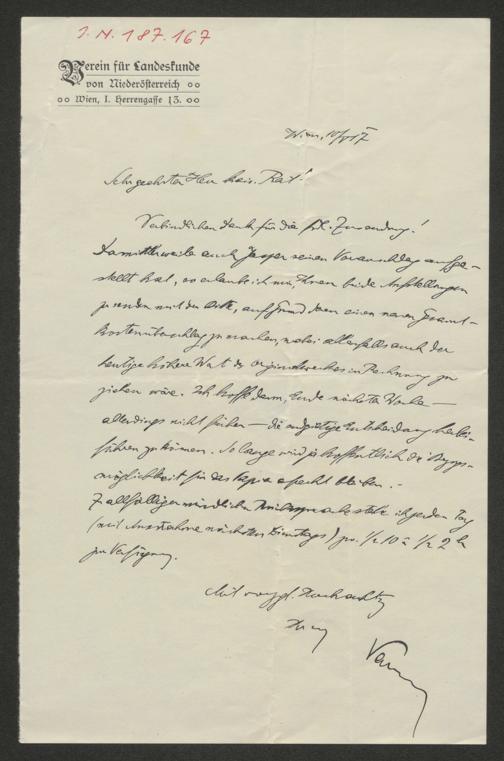 J. N. 187.167
Verein für Landeskunde
von Niederösterreich
Wien, I. Herrengasse 13.
Wien, 10/V 17
Sehr geehrter Herr kais. Rat!
Verbindlichen Dank für die frdl. Zusendung!
Da mittlerweile auch Jasper seinen Voranschlag aufge-
stellt hat, so erlaube ich mir, Ihnen beide Aufstellungen
zu senden mit der Bitte, auf Grund deren einen neuen Gesamt-
kostenüberschlag zu machen, wobei allenfalls auch der
heutige höhere Wert des in Rechnung zu
ziehen wäre. Ich hoffe dann, Ende nächster Woche —
allerdings nicht früher — die endgültige Entscheidung herbei-
führen zu können. So lange wird ja hoffentlich die Bezugs-
möglichkeit für das Papier aufrecht bleiben. -
Z allfälliger mündlicher stehe ich jeden Tag
(mit Ausnahme nächsten Dienstags) zw. 1/2 10 u 1/2 2 h
zur Verfügung.
Mit vorzgl. Hochachtg